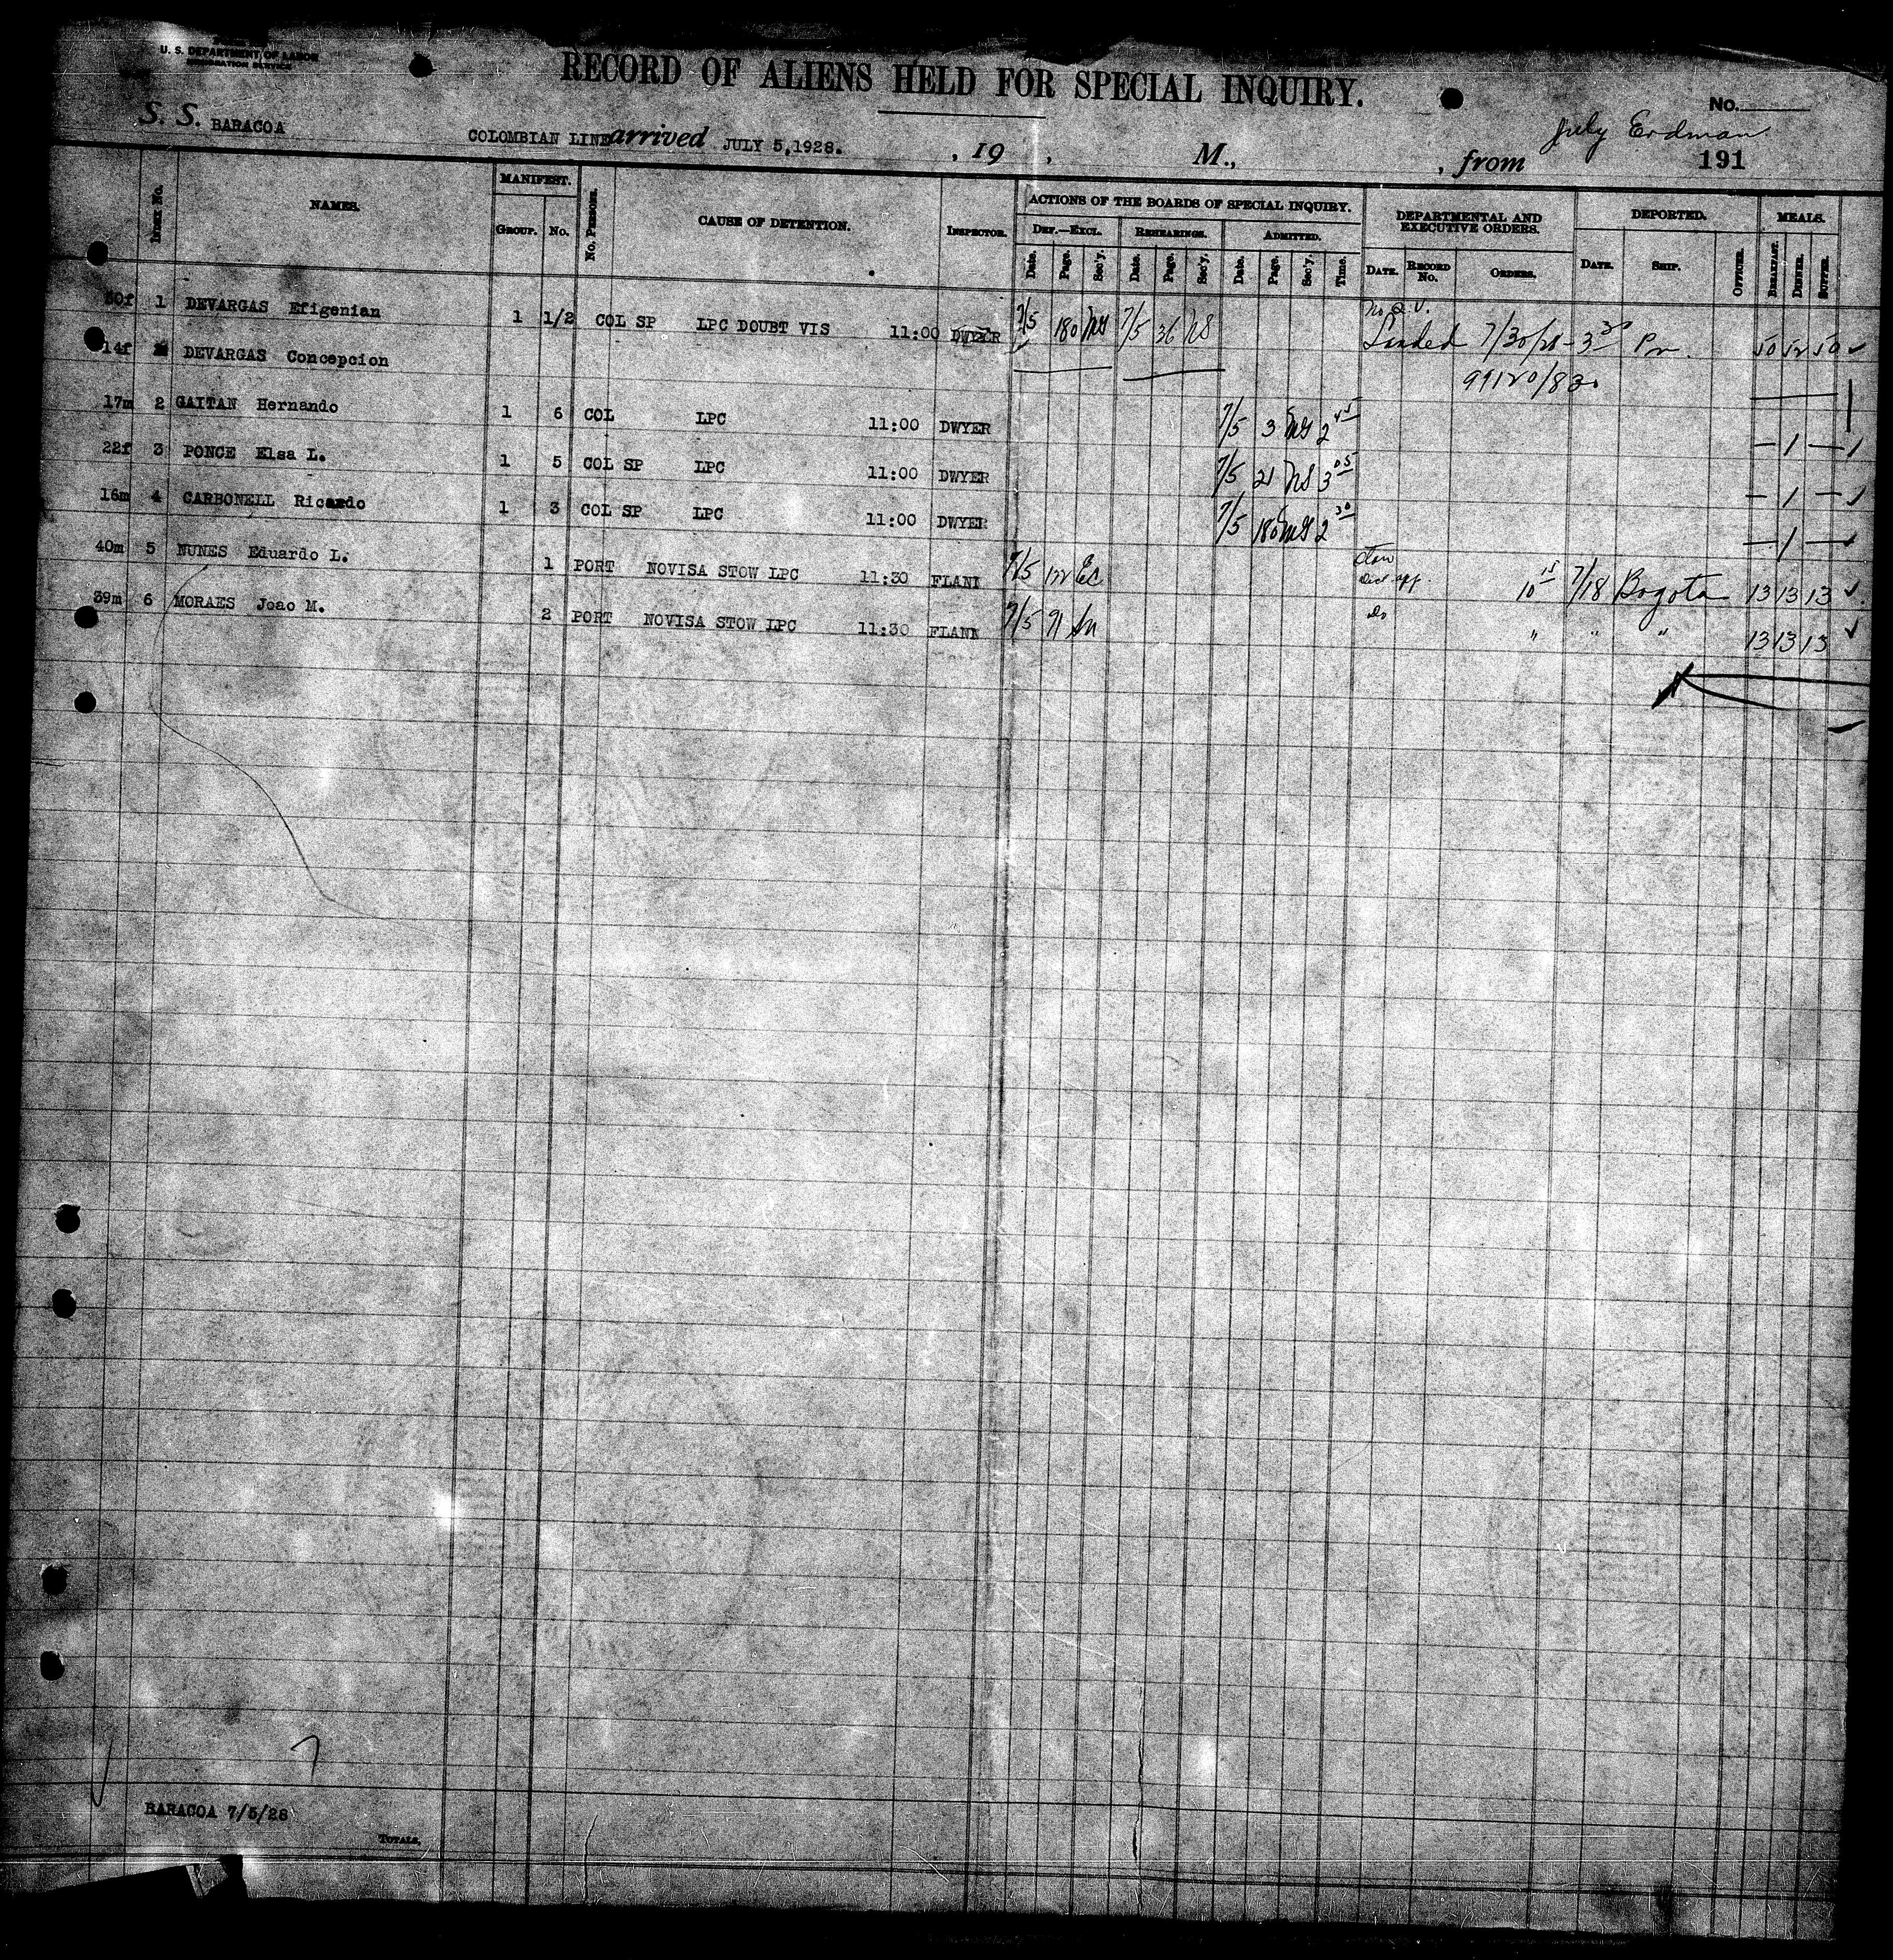 U. S. DEPARTMENT OF LABOR
IMMIGRATION SERVICE
RECORD OF ALIENS HELD FOR SPECIAL INQUIRY.
No.
S. S. BARACOA COLOMBIAN LINE arrived JULY 5,1928. , 19 , M., , from 191
July Erdman
INDEX No. NAMES. MANIFEST. GROUP. No. No. PERSONS. CAUSE OF DETENTION. INSPECTOR. ACTIONS OF THE BOARDS OF SPECIAL INQUIRY. DEPARTMENTAL AND EXECUTIVE ORDERS. DEPORTED. MEALS.
DEF.—EXCL. REHEARINGS. ADMITTED.
Date. Page. Sec'y. Date. Page. Sec'y. Date. Page. Sec'y. Time. DATE. RECORD No. ORDERS. DATE. SHIP. OFFICER. BREAKFAST. DINNER. SUPPER.
30f 1 DEVARGAS Efigenian 1 1/2 COL SP LPC DOUBT VIS 11:00 DWYER 7/5 180 7/5 36 HS Landed 7/30/28 - 3 30 50 52 50
14f DEVARGAS Concepcion 99120/83
17m 2 GAITAN Hernando 1 6 COL LPC 11:00 DWYER 7/5 3 2 45 — 1 —
22f 3 PONCE Elsa L. 1 5 COL SP LPC 11:00 DWYER 7/5 21 HS 3 05 — 1 —
16m 4 CARBONELL Ricardo 1 3 COL SP LPC 11:00 DWYER 7/5 180 2 30 — 1 —
40m 5 NUNES Eduardo L. 1 PORT NOVISA STOW LPC 11:30 FLANN 7/5 Ec 10 15 7/18 Bogota 13 13 13
39m 6 MORAES Joao M. 2 PORT NOVISA STOW LPC 11:30 FLANN 7/5 91 Do " " " 13 13 13
BARACOA 7/5/28
TOTALS.